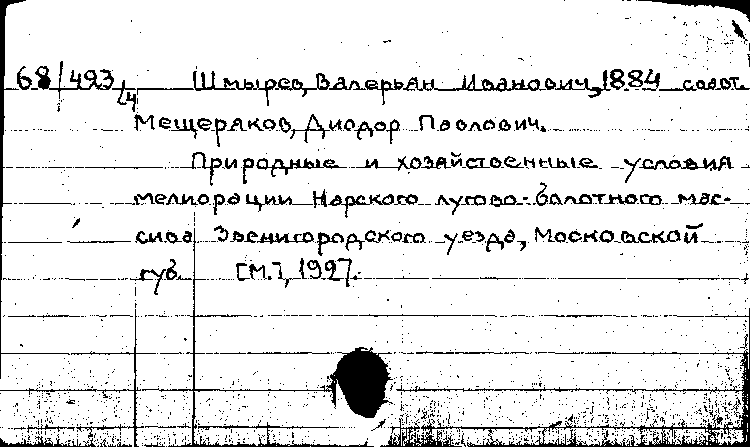 68/493/4 Шмырев, Валерьян Иванович, 1884 соавт.
Мещеряков, Диодор Павлович.
Природные и хозяйственные условия
мелиорации Нарского лугово-болотного мас-
сива Звенигородского уезда, Московской
губ. [М.], 1927.